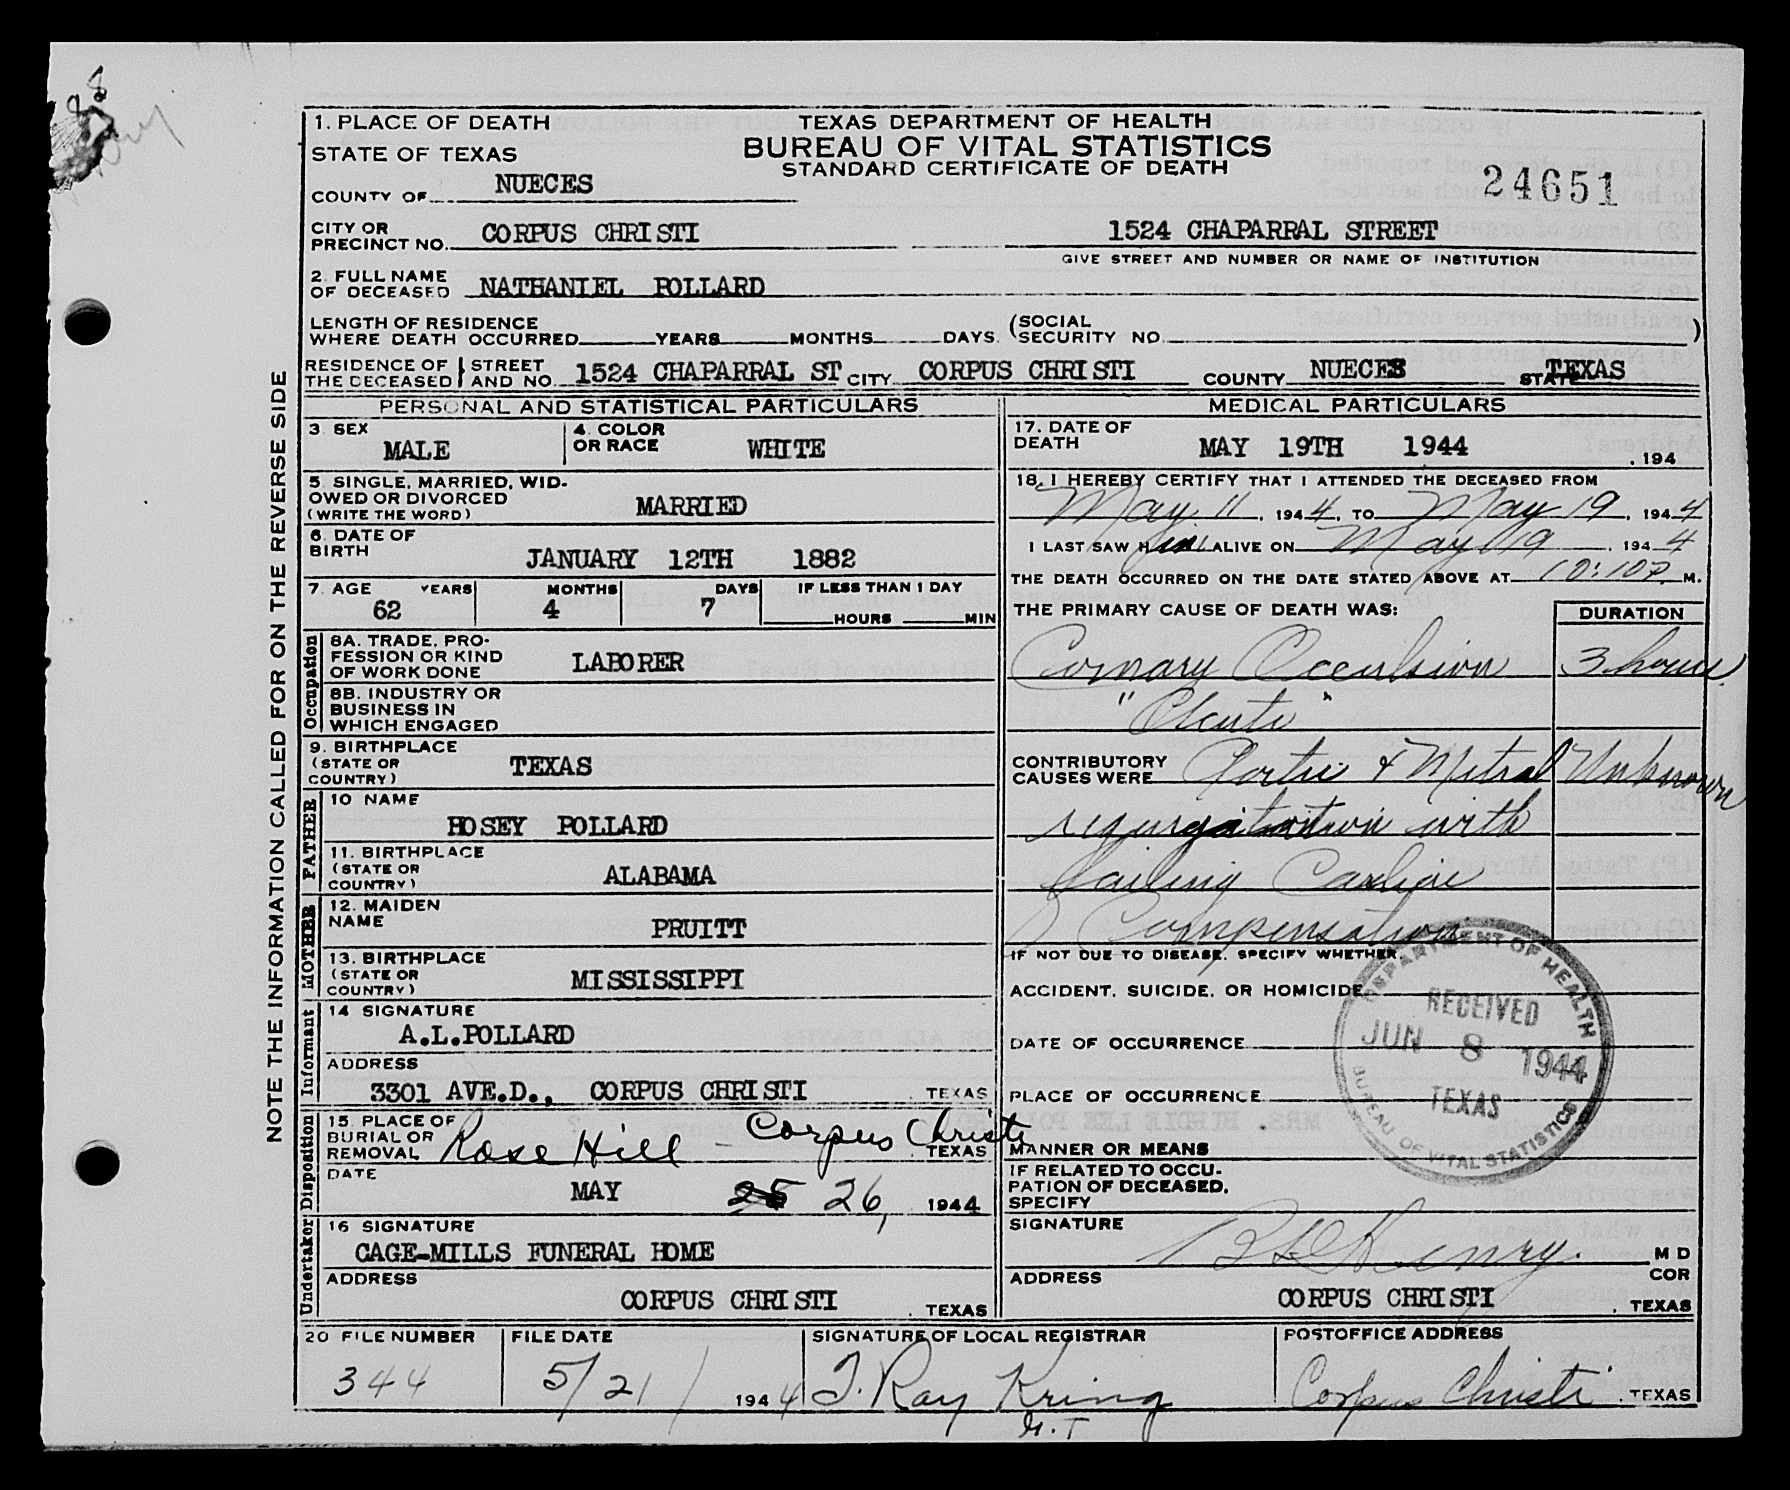 1. PLACE OF DEATH
TEXAS DEPARTMENT OF HEALTH
STATE OF TEXAS
BUREAU OF VITAL STATISTICS
STANDARD CERTIFICATE OF DEATH
24651
COUNTY OF NUECES
CITY OR PRECINCT NO. CORPUS CHRISTI 1524 CHAPARRAL STREET
GIVE STREET AND NUMBER OR NAME OF INSTITUTION
2. FULL NAME OF DECEASED NATHANIEL POLLARD
LENGTH OF RESIDENCE WHERE DEATH OCCURRED YEARS MONTHS DAYS. (SOCIAL SECURITY NO. )
RESIDENCE OF THE DECEASED STREET AND NO. 1524 CHAPARRAL ST CITY CORPUS CHRISTI COUNTY NUECES STATE TEXAS
NOTE THE INFORMATION CALLED FOR ON THE REVERSE SIDE
PERSONAL AND STATISTICAL PARTICULARS
3. SEX MALE
4. COLOR OR RACE WHITE
5. SINGLE, MARRIED, WIDOWED OR DIVORCED (WRITE THE WORD) MARRIED
6. DATE OF BIRTH JANUARY 12TH 1882
7. AGE YEARS MONTHS DAYS IF LESS THAN 1 DAY
62 4 7 HOURS MIN
Occupation
8A. TRADE, PROFESSION OR KIND OF WORK DONE LABORER
8B. INDUSTRY OR BUSINESS IN WHICH ENGAGED
9. BIRTHPLACE (STATE OR COUNTRY) TEXAS
FATHER
10 NAME
HOSEY POLLARD
11. BIRTHPLACE (STATE OR COUNTRY) ALABAMA
MOTHER
12. MAIDEN NAME PRUITT
13. BIRTHPLACE (STATE OR COUNTRY) MISSISSIPPI
Informant
14 SIGNATURE
A.L.POLLARD
ADDRESS
3301 AVE.D., CORPUS CHRISTI , TEXAS
Disposition
15. PLACE OF BURIAL OR REMOVAL Rose Hill - Corpus Christi , TEXAS
DATE
MAY 25 26, 1944
Undertaker
16 SIGNATURE
CAGE-MILLS FUNERAL HOME
ADDRESS
CORPUS CHRISTI , TEXAS
MEDICAL PARTICULARS
17. DATE OF DEATH MAY 19TH 1944 , 194
18. I HEREBY CERTIFY THAT I ATTENDED THE DECEASED FROM
May 11 , 1944, TO May 19 , 1944
I LAST SAW Him ALIVE ON May 19 , 1944
THE DEATH OCCURRED ON THE DATE STATED ABOVE AT 10:10P. M.
THE PRIMARY CAUSE OF DEATH WAS: DURATION
Cornary Occulsion 3 hours
"Acute"
CONTRIBUTORY CAUSES WERE Aortic & Mitral Unknown
with
failing
Compensation
IF NOT DUE TO DISEASE, SPECIFY WHETHER:
ACCIDENT, SUICIDE, OR HOMICIDE
DATE OF OCCURRENCE
PLACE OF OCCURRENCE
MANNER OR MEANS
IF RELATED TO OCCUPATION OF DECEASED, SPECIFY
DEPARTMENT OF HEALTH
RECEIVED
JUN 8 1944
TEXAS
BUREAU OF VITAL STATISTICS
SIGNATURE Henry. M D
ADDRESS COR
CORPUS CHRISTI , TEXAS
20 FILE NUMBER FILE DATE SIGNATURE OF LOCAL REGISTRAR POSTOFFICE ADDRESS
344 5/21/ 1944 T. Ray Kring Corpus Christi , TEXAS